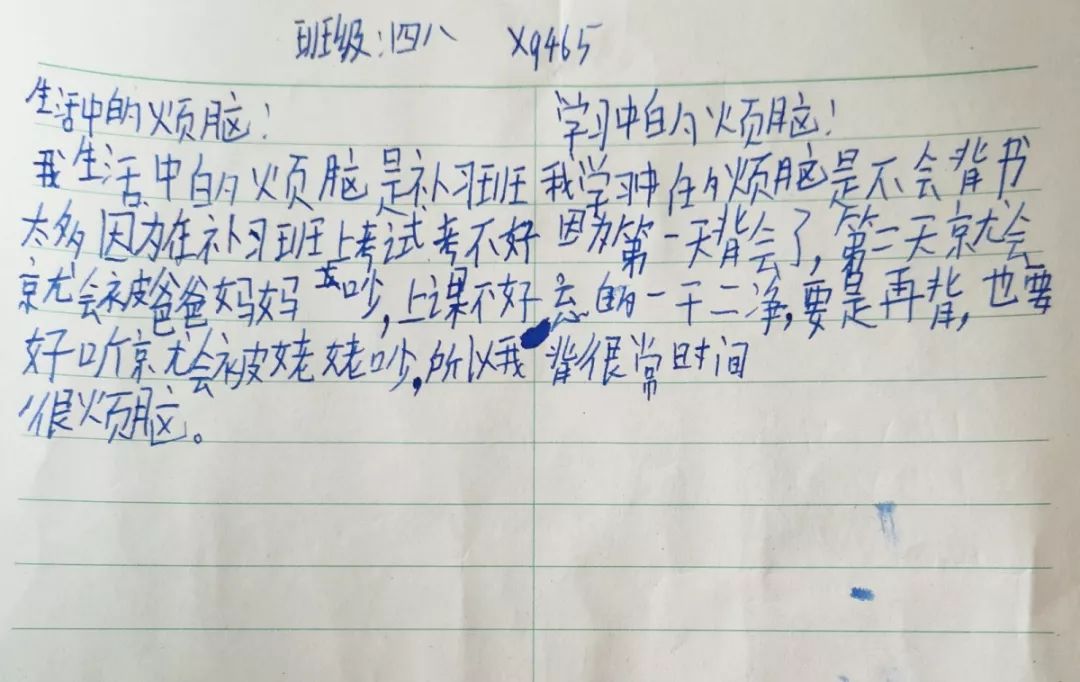 班级:四八 x9465
生活中的烦脑!
我生活中的烦脑是补习班
太多因为在补习班上考试考不好
就会被爸爸妈妈吵,上课不好
好听就会被姥姥吵,所以我
很烦脑。
学习中的烦脑!
我学习中的烦脑是不会背书
因为第一天背会了,第二天就会
忘的一干二净,要是再背,也要
背很常时间